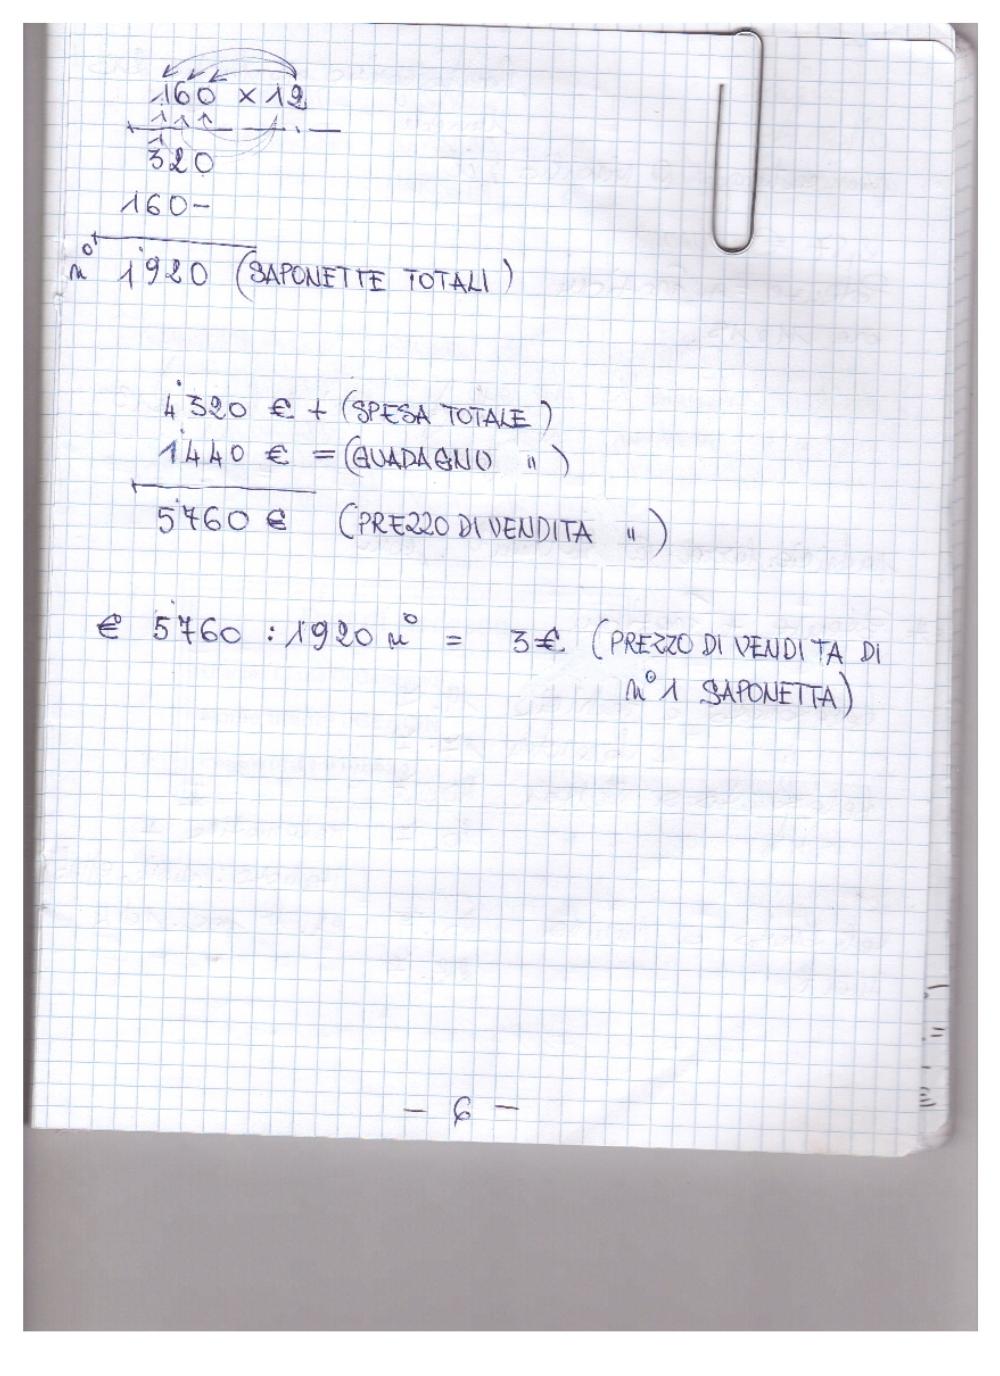 160 x 12
320
160-
n° 1˙920 (SAPONETTE TOTALI)
4˙320 € + (SPESA TOTALE)
1˙440 € = (GUADAGNO ")
5˙760 € (PREZZO DI VENDITA ")
€ 5˙760 : 1920 n° = 3 € (PREZZO DI VENDITA DI
n° 1 SAPONETTA)
- 6 -